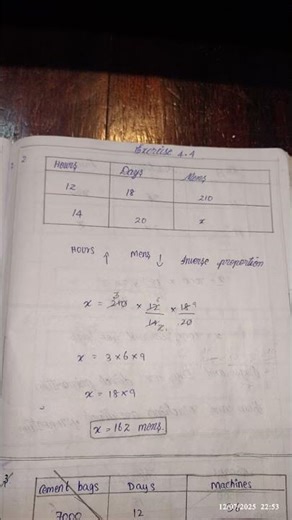 Exercise 4.4
2
Hours Days Mens
12 18 210
14 20 x
Hours ↑ mens ↓ Inverse proportion
x = 210 × 12/14 × 18/20
x = 3 × 6 × 9
x = 18 × 9
x = 162 mens.
3
Cement bags Days machines
7000 12
12/07/2025 22:53